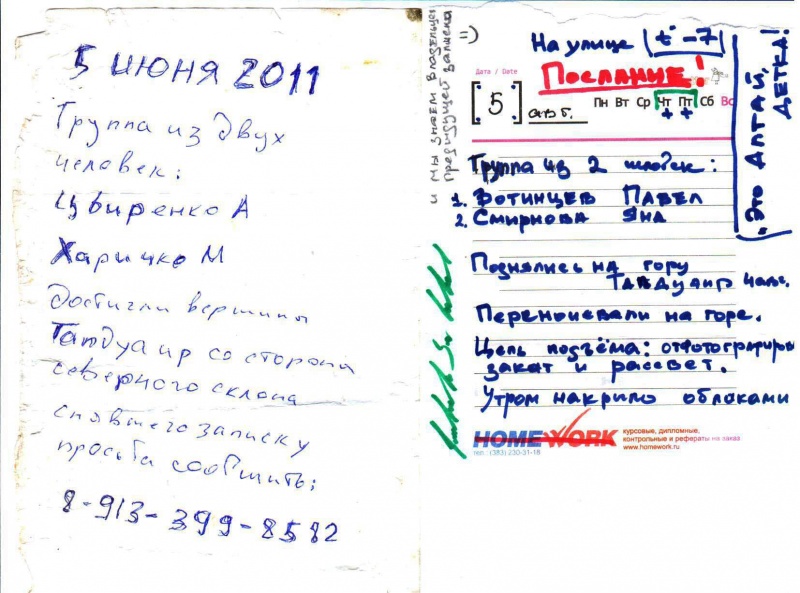 5 июня 2011
Группа из двух
человек:
Цвиренко А
Харичко М
достигли вершины
Татдуаир со стороны
северного склона
снявшего записку
просьба сообщить:
8-913-399-8582
и мы знаем владельцев
предыдущей записки
=)
На улице t° -7
Послание!
Дата / Date
[5] авг.
Пн Вт Ср Чт Пт Сб Вс
Это Алтай,
детка!
Группа из 2 человек:
1. Вотинцев Павел
2. Смирнова Яна
Поднялись на гору
Татдуаир
Переночевали на горе.
Цель подъёма: отфотографиров
закат и рассвет.
Утром накрыло облаками
HOMEWORK
курсовые, дипломные,
контрольные и рефераты на заказ
тел.: (383) 230-31-18
www.homework.ru